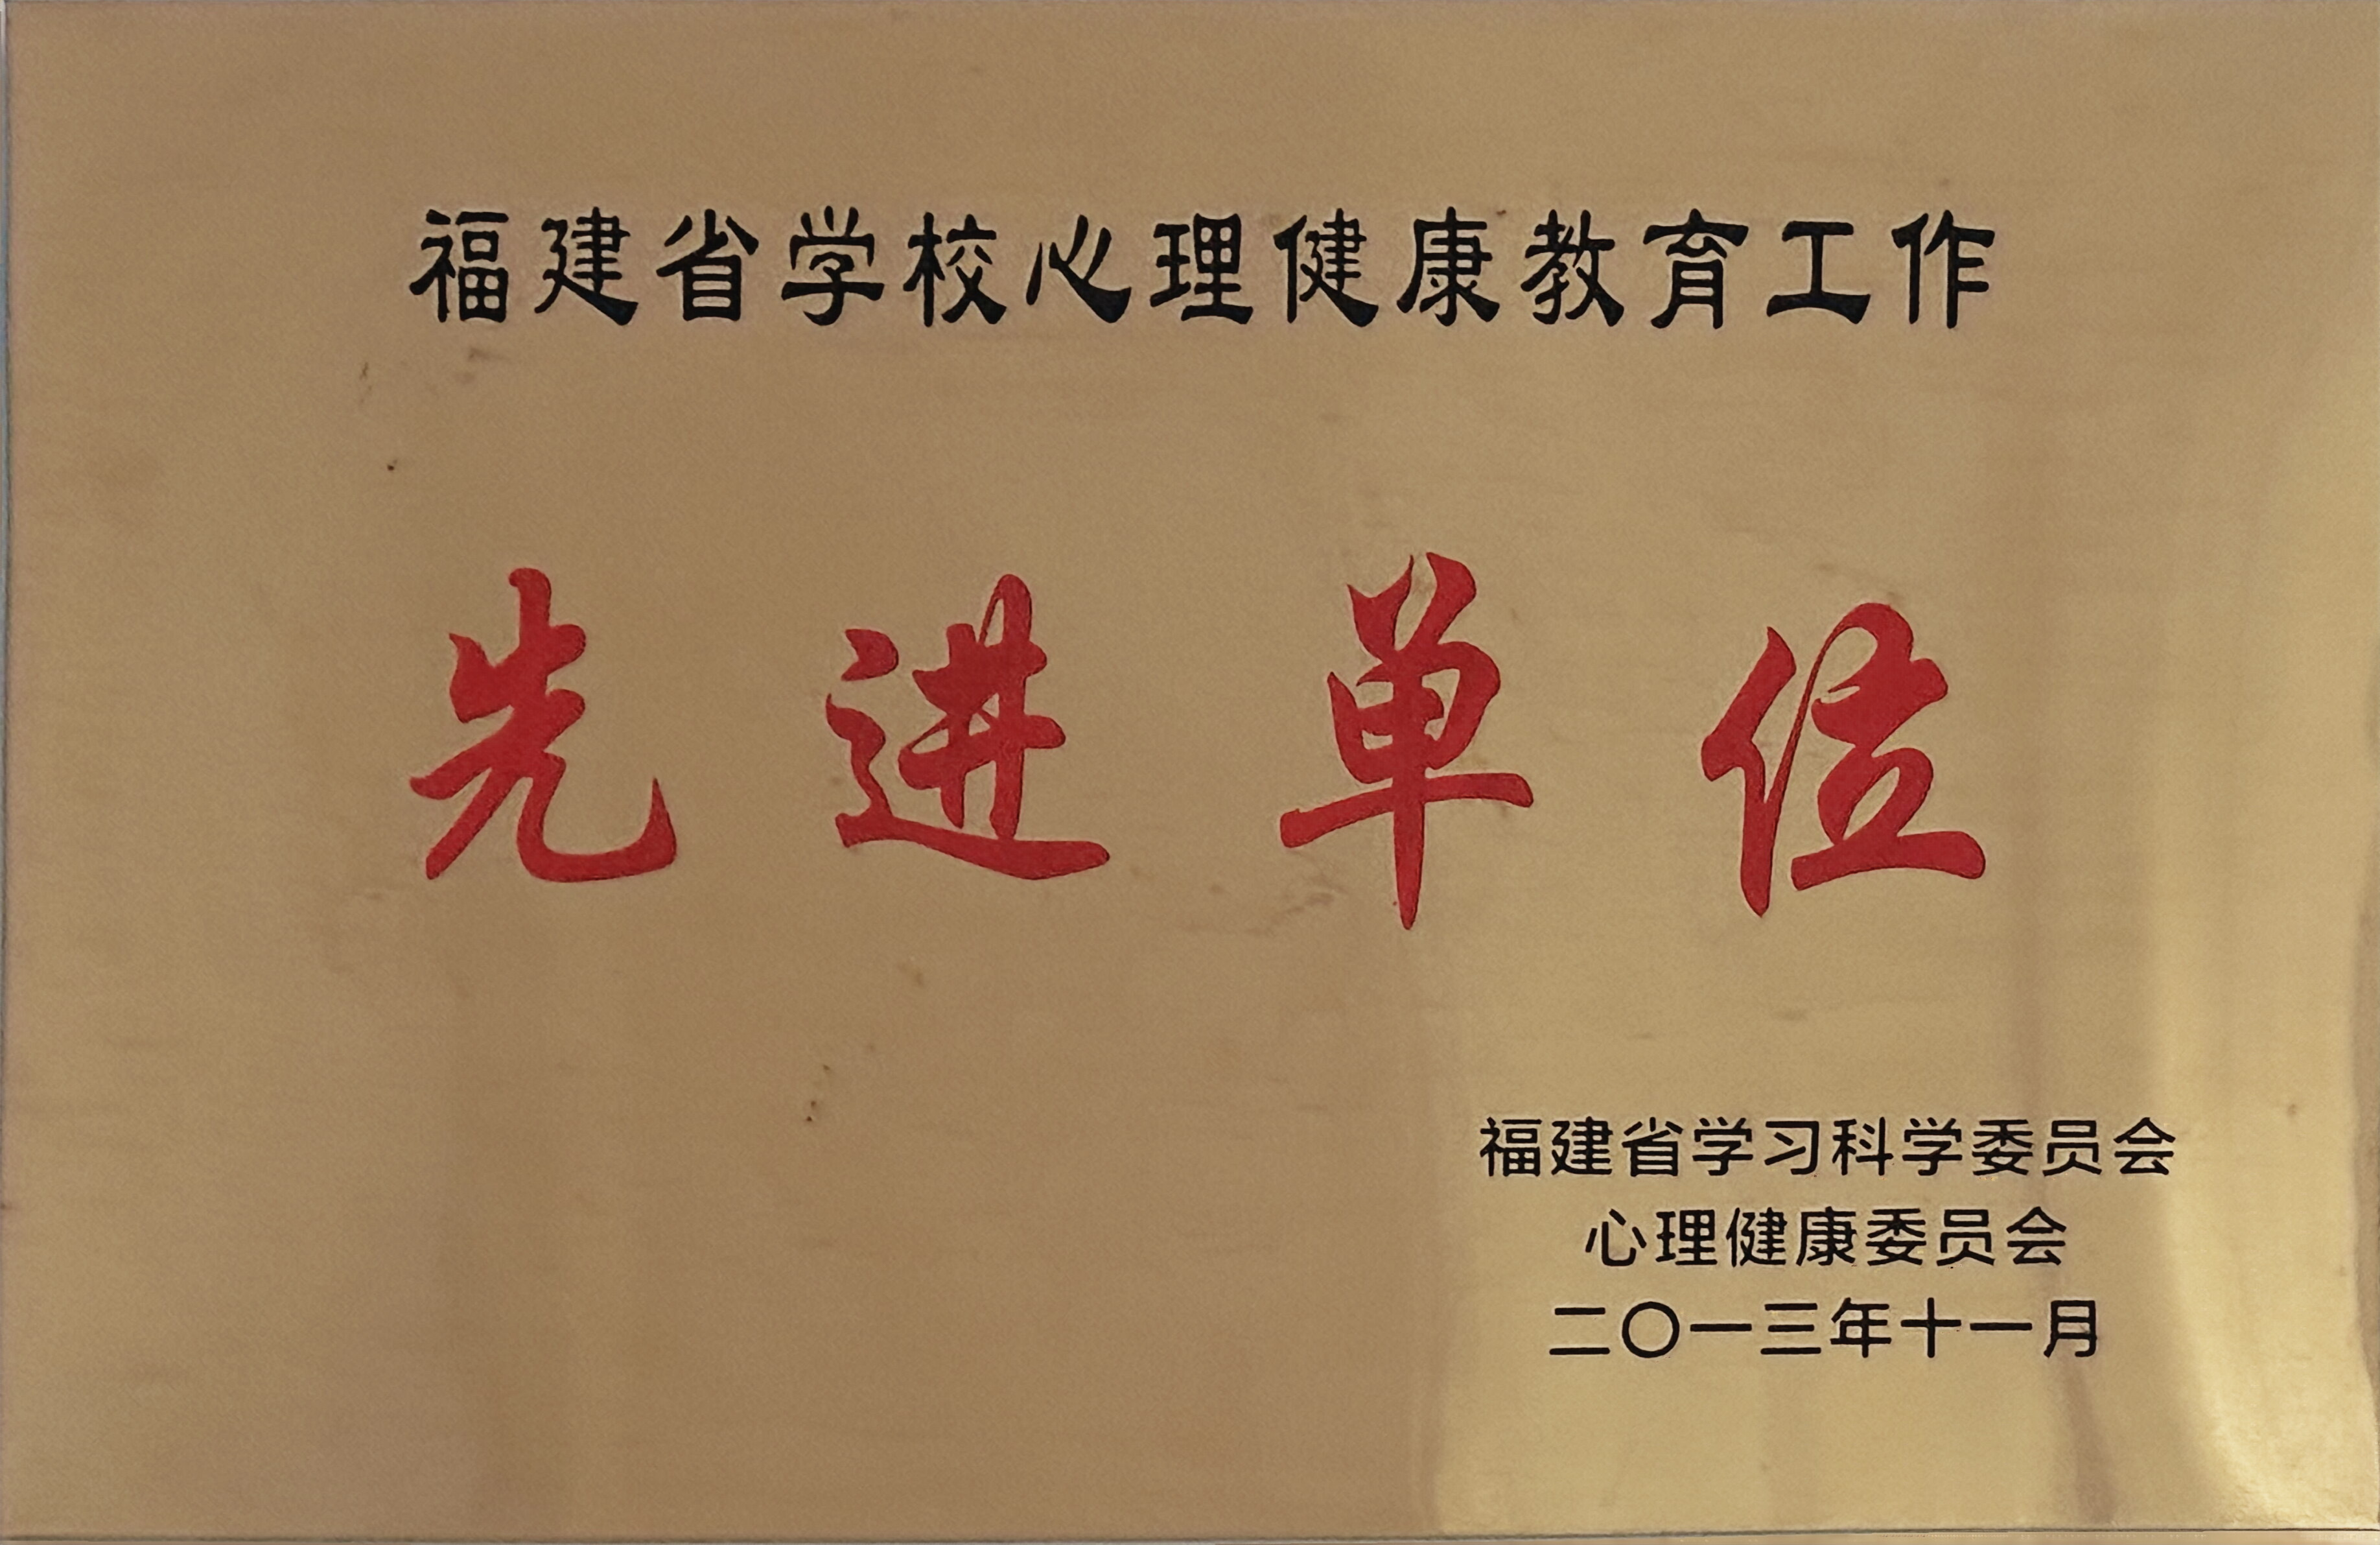 福建省学校心理健康教育工作
先进单位
福建省学习科学委员会
心理健康委员会
二〇一三年十一月